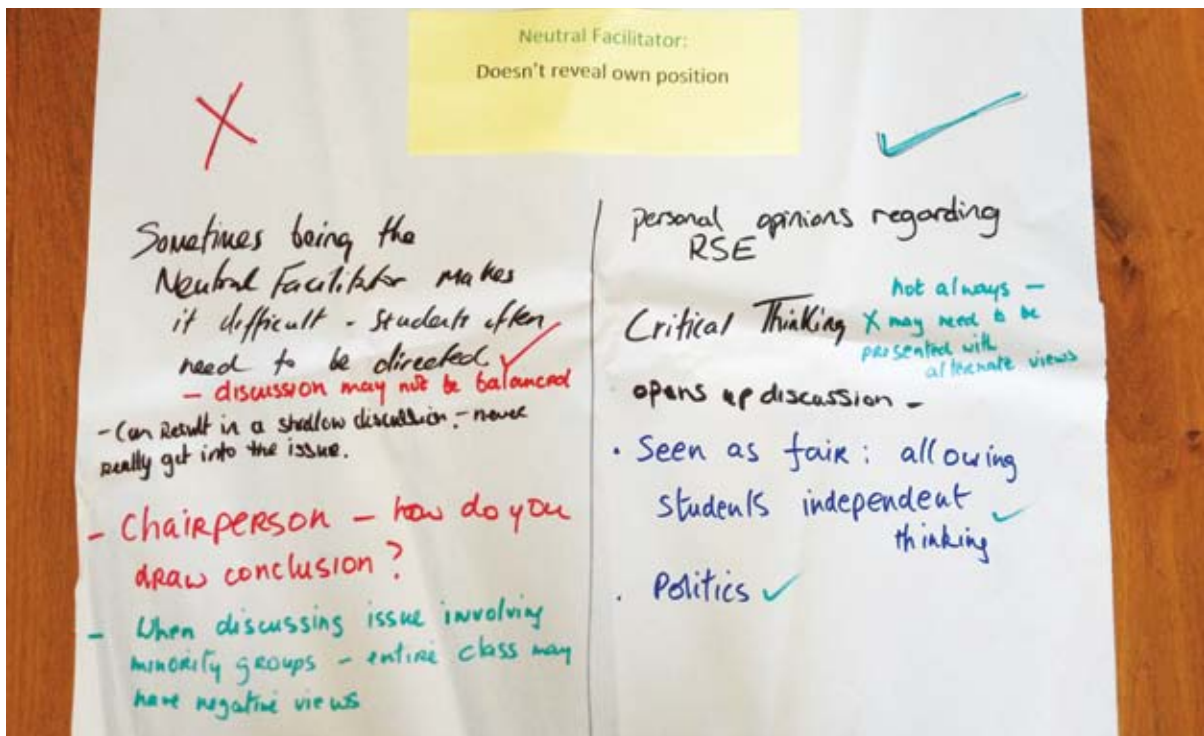 Neutral Facilitator:
Doesn't reveal own position
Sometimes being the
Neutral Facilitator makes
it difficult - students often
need to be directed
- discussion may not be balanced
- Can Result in a shallow discussion - never
really get into the issue.
- Chairperson - how do you
draw conclusion?
- When discussing issue involving
minority groups - entire class may
have negative views
personal opinions regarding
RSE
Critical Thinking
not always -
may need to be
presented with
alternate views
opens up discussion -
• Seen as fair: allowing
students independent
thinking
. Politics